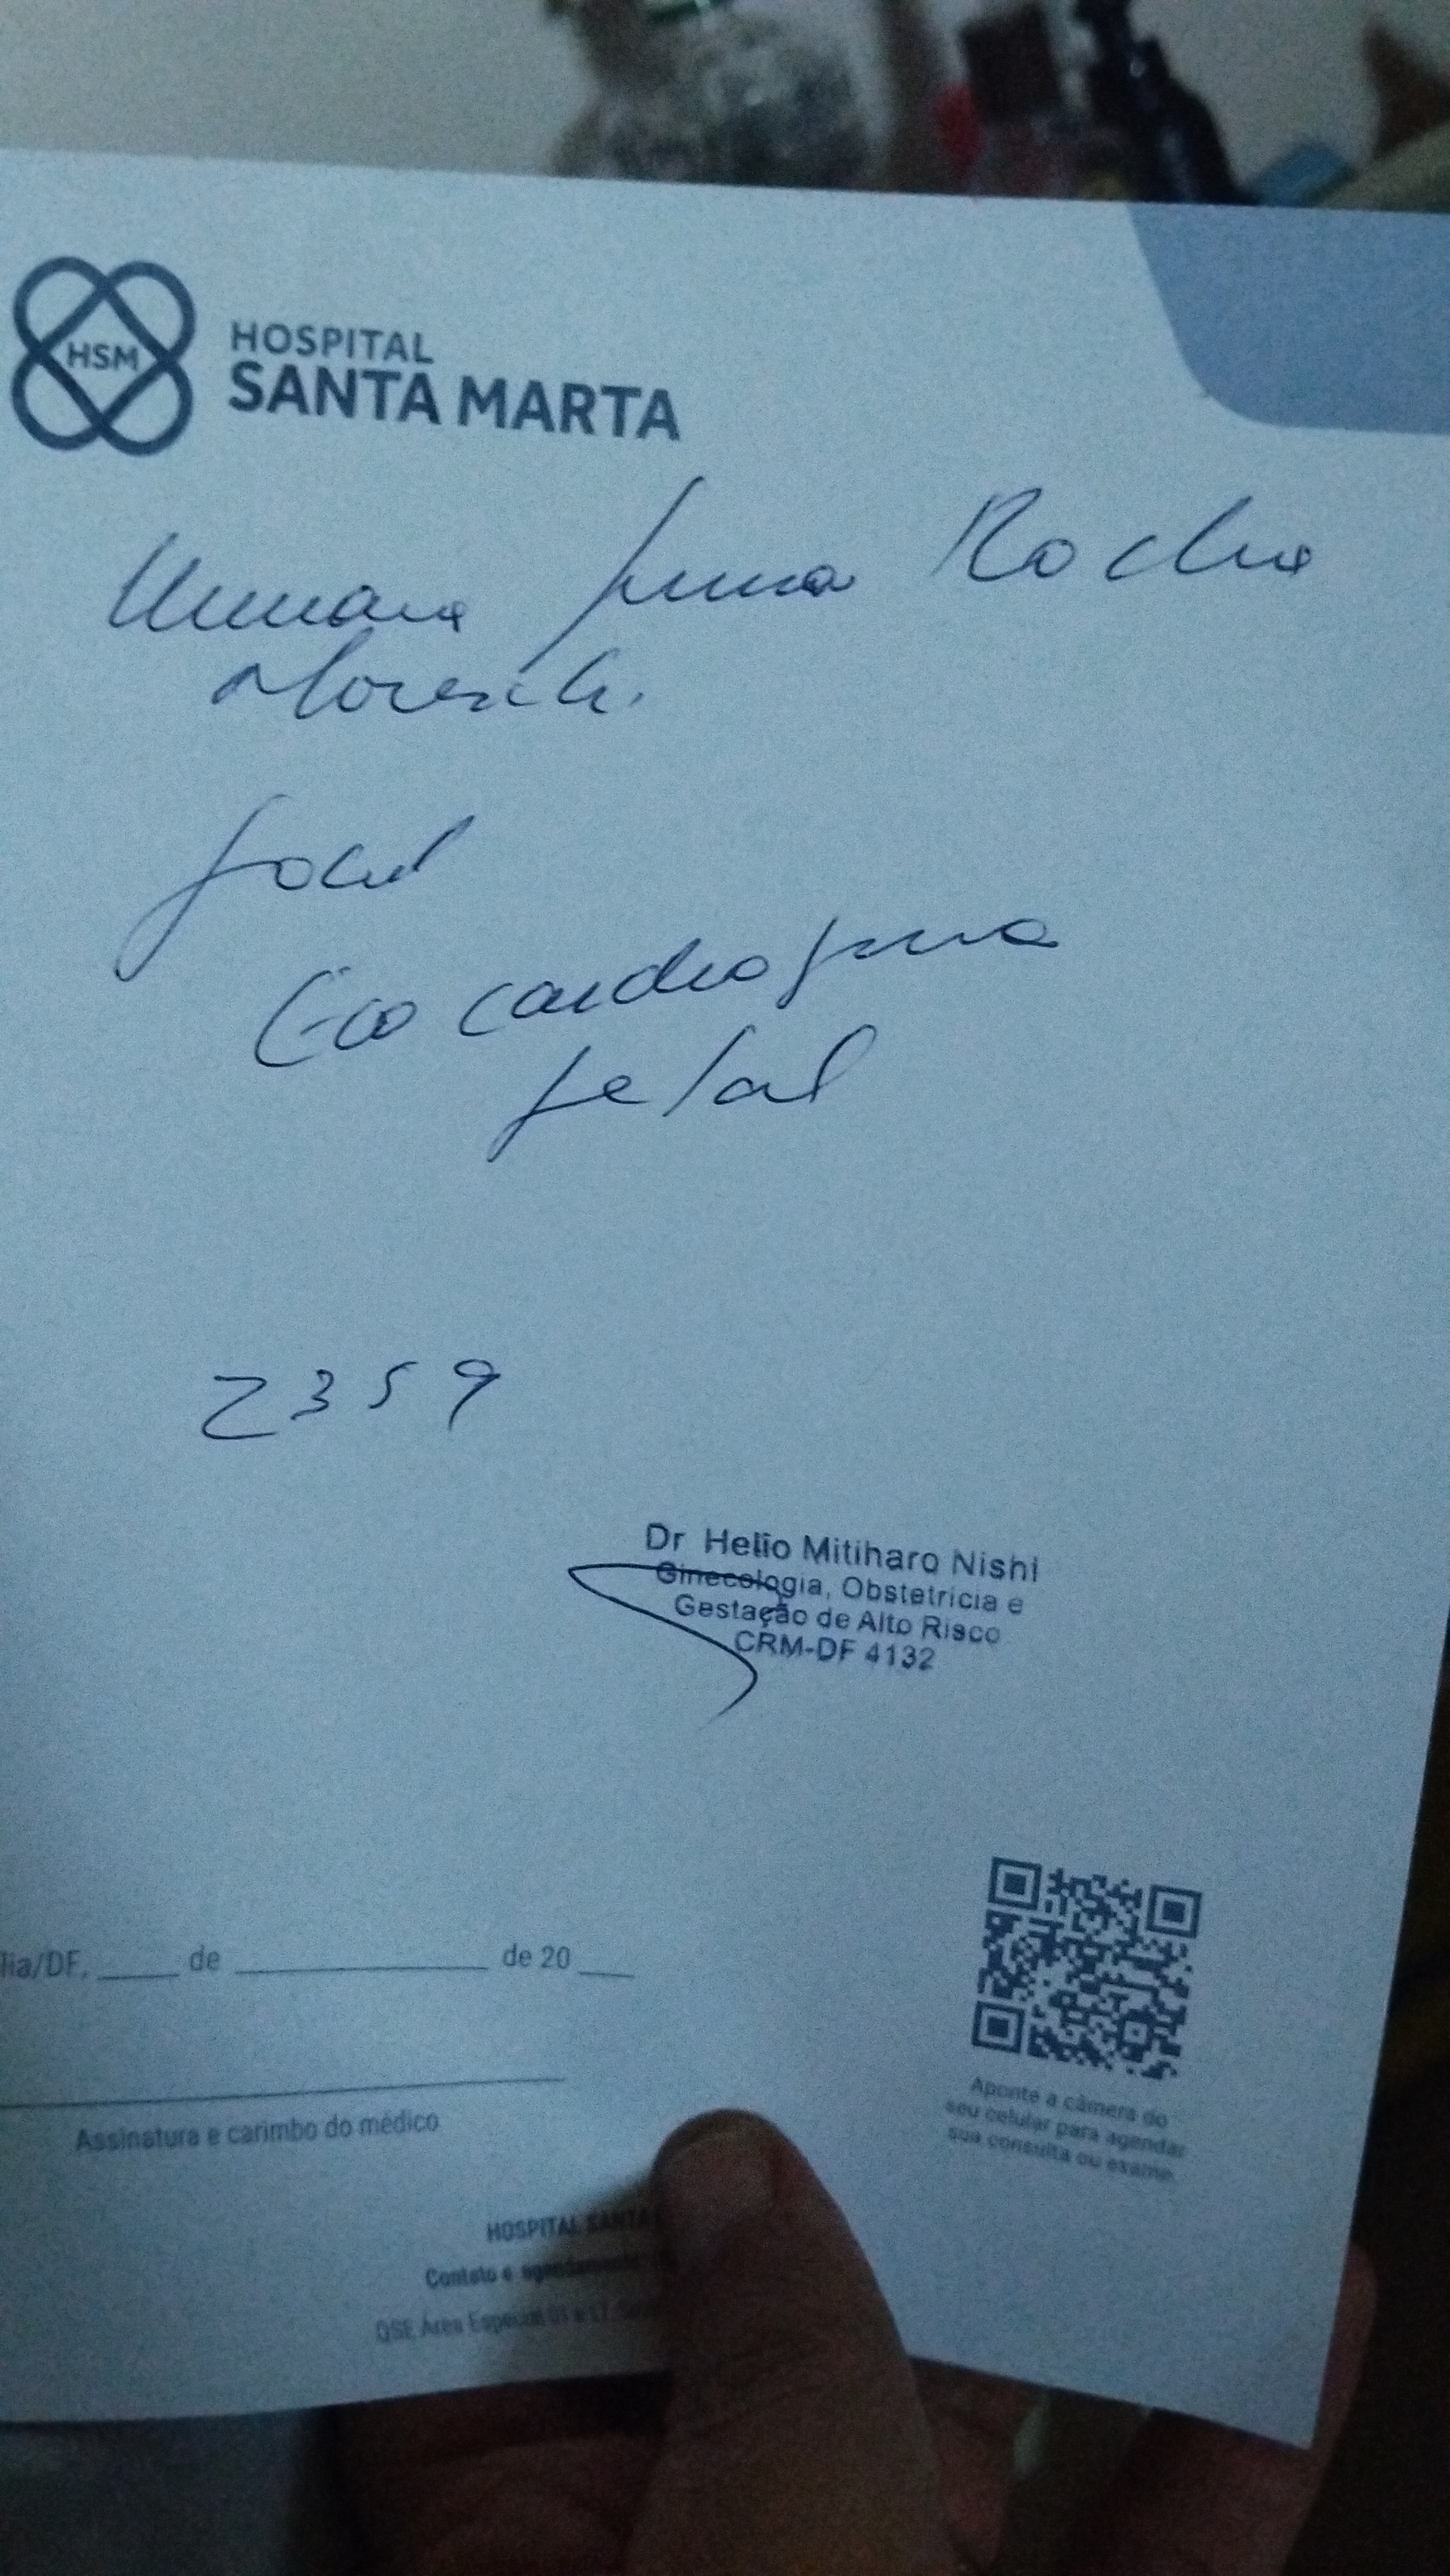 HSM
HOSPITAL
SANTA MARTA
Rocha
Ecocardiograma
fetal
2359
Dr Helio Mitiharo Nishi
Ginecologia, Obstetrícia e
Gestação de Alto Risco
CRM-DF 4132
lia/DF, ____ de ____________ de 20 ___
Assinatura e carimbo do médico
Aponte a câmera do
seu celular para agendar
sua consulta ou exame
HOSPITAL SANTA
Contato e agendamento
QSE Área Especial 01 a 17,